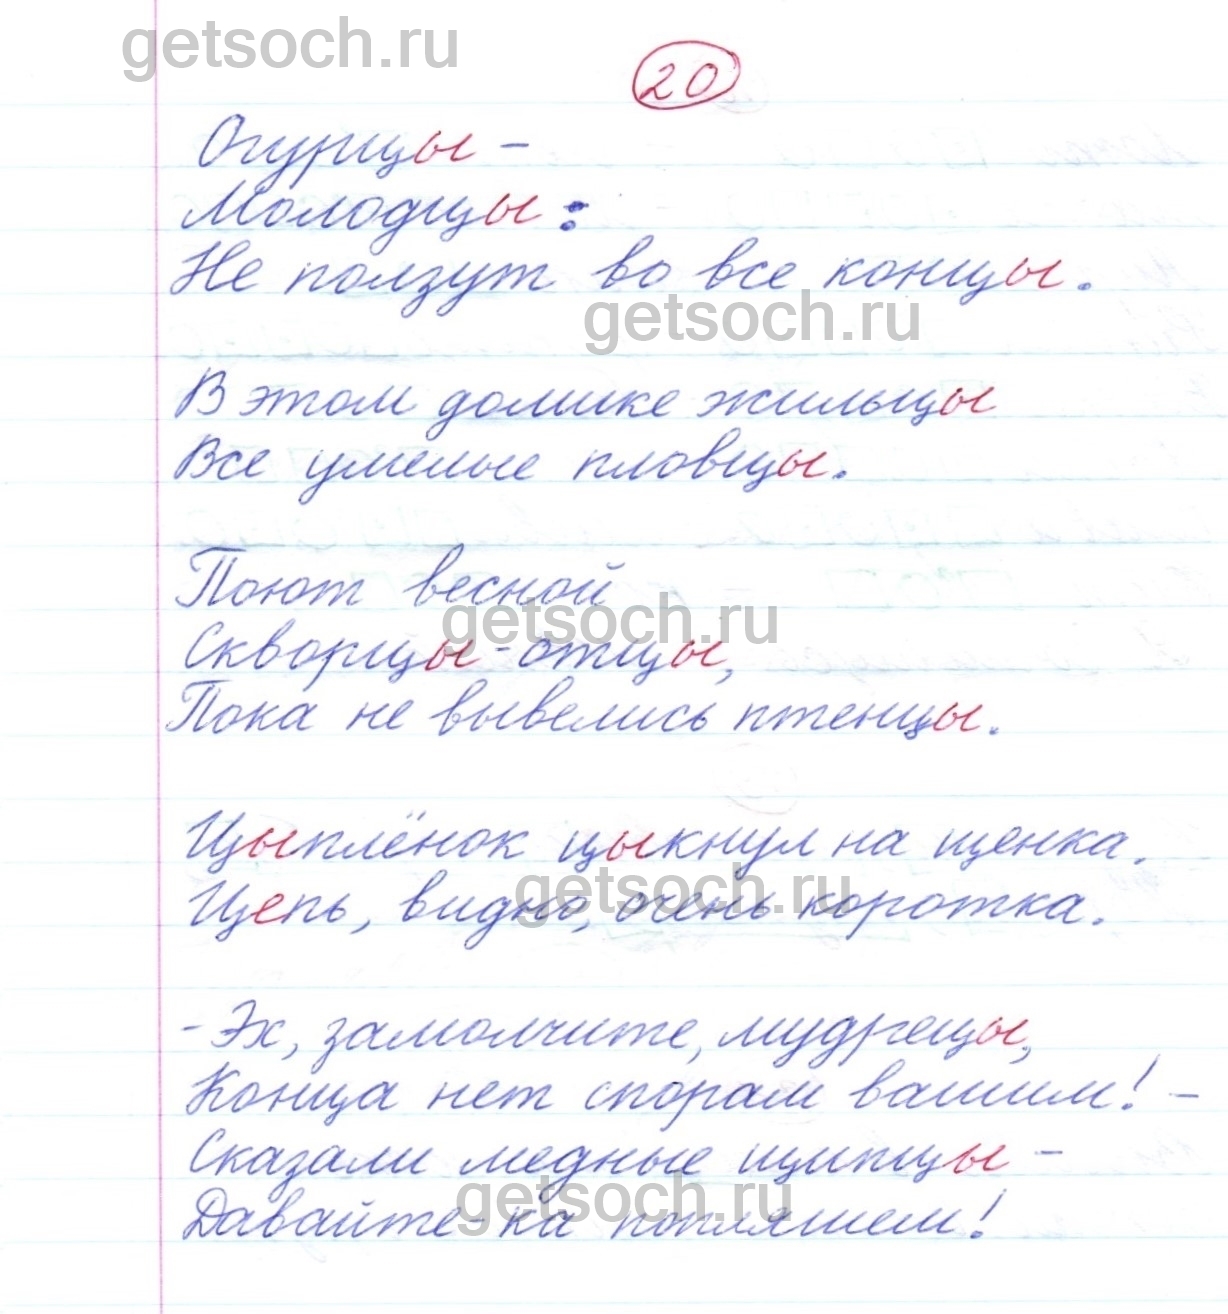 getsoch.ru
20
Огурцы -
Молодцы :
Не ползут во все концы.
getsoch.ru
В этом домике жильцы
Все умелые пловцы.
Поют весной
getsoch.ru
Скворцы-отцы,
Пока не вывелись птенцы.
Цыплёнок цыкнул на щенка.
getsoch.ru
Цепь, видно, очень коротка.
-Эх, замолчите, мудрецы,
Конца нет спорам вашим! -
Сказали медные щипцы -
getsoch.ru
Давайте-ка попляшем!